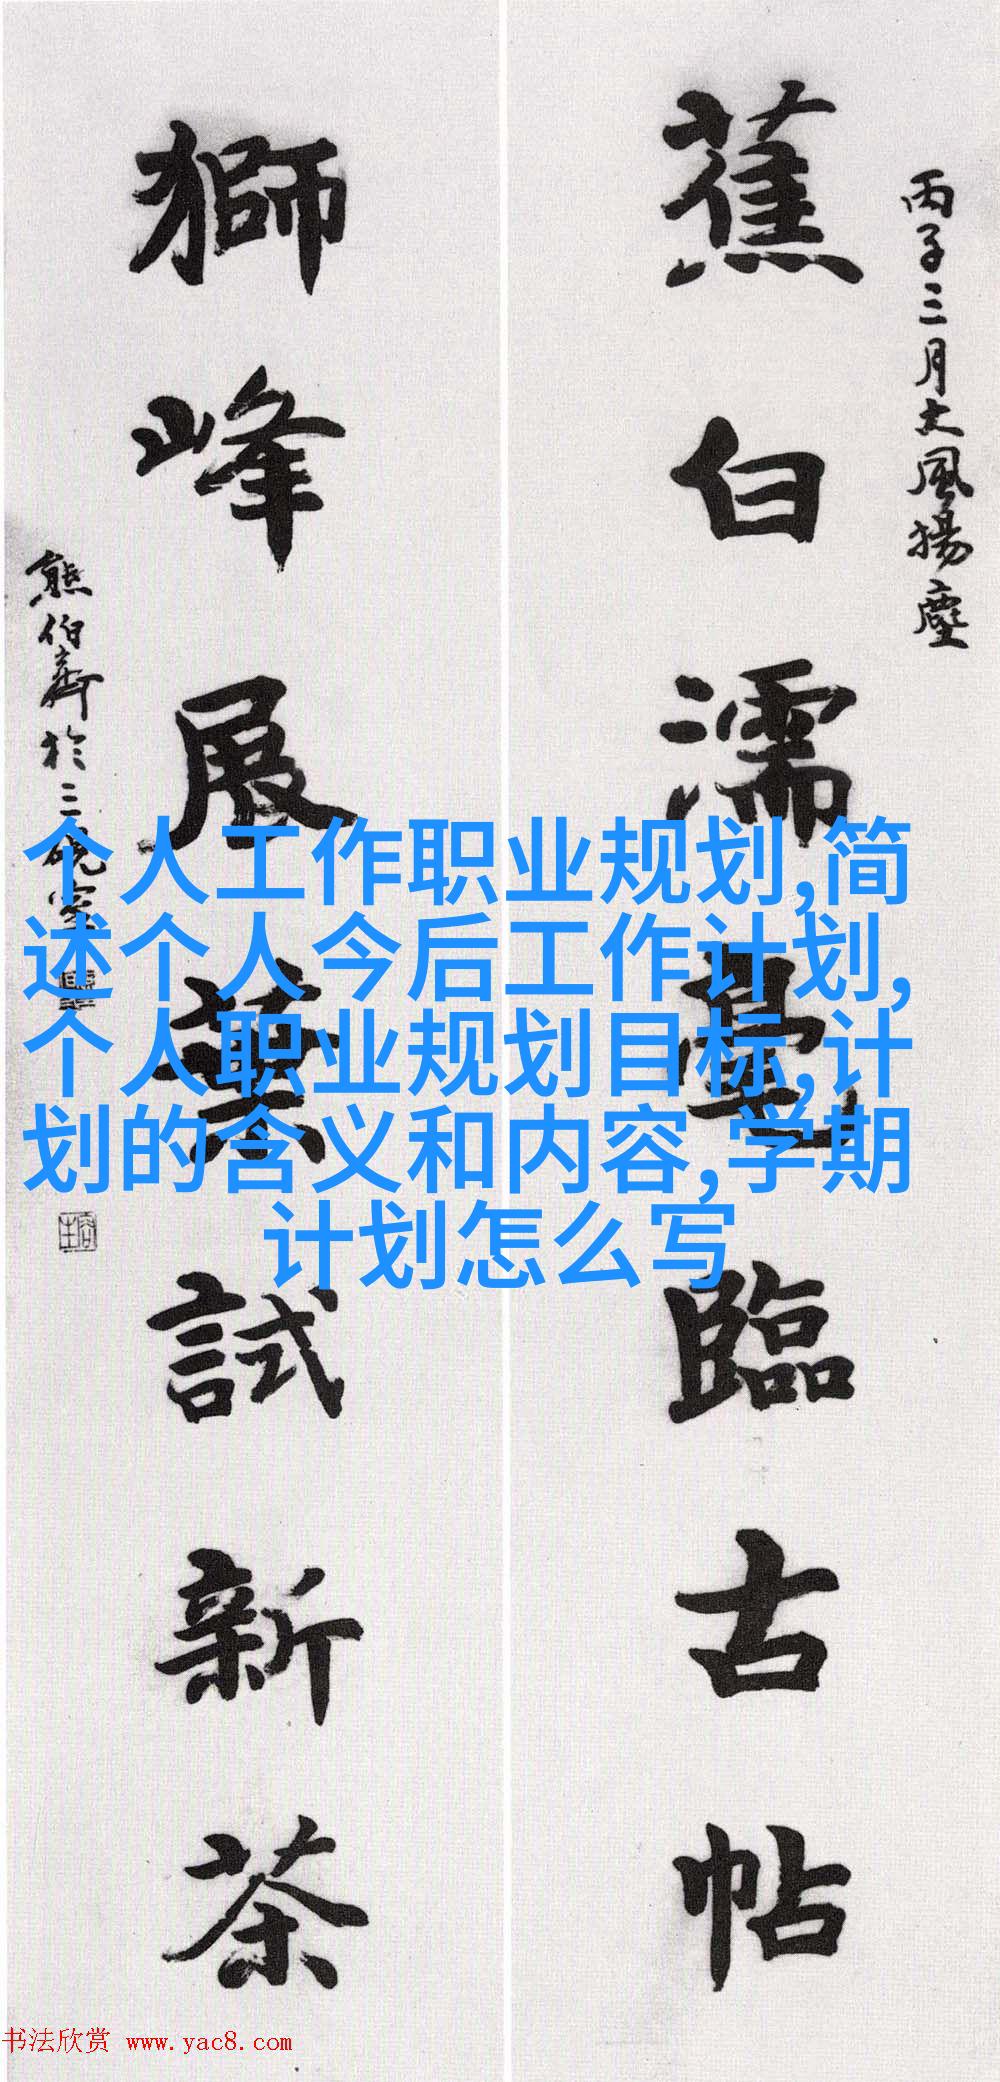 丙子三月大風揚塵
蕉白濡毫臨古帖
獅峰展葉試新茶
熊伯齊於三硯室
个人工作职业规划,简
述个人今后工作计划,
个人职业规划目标,计
划的含义和内容,学期
计划怎么写
书法欣赏 www.yac8.com